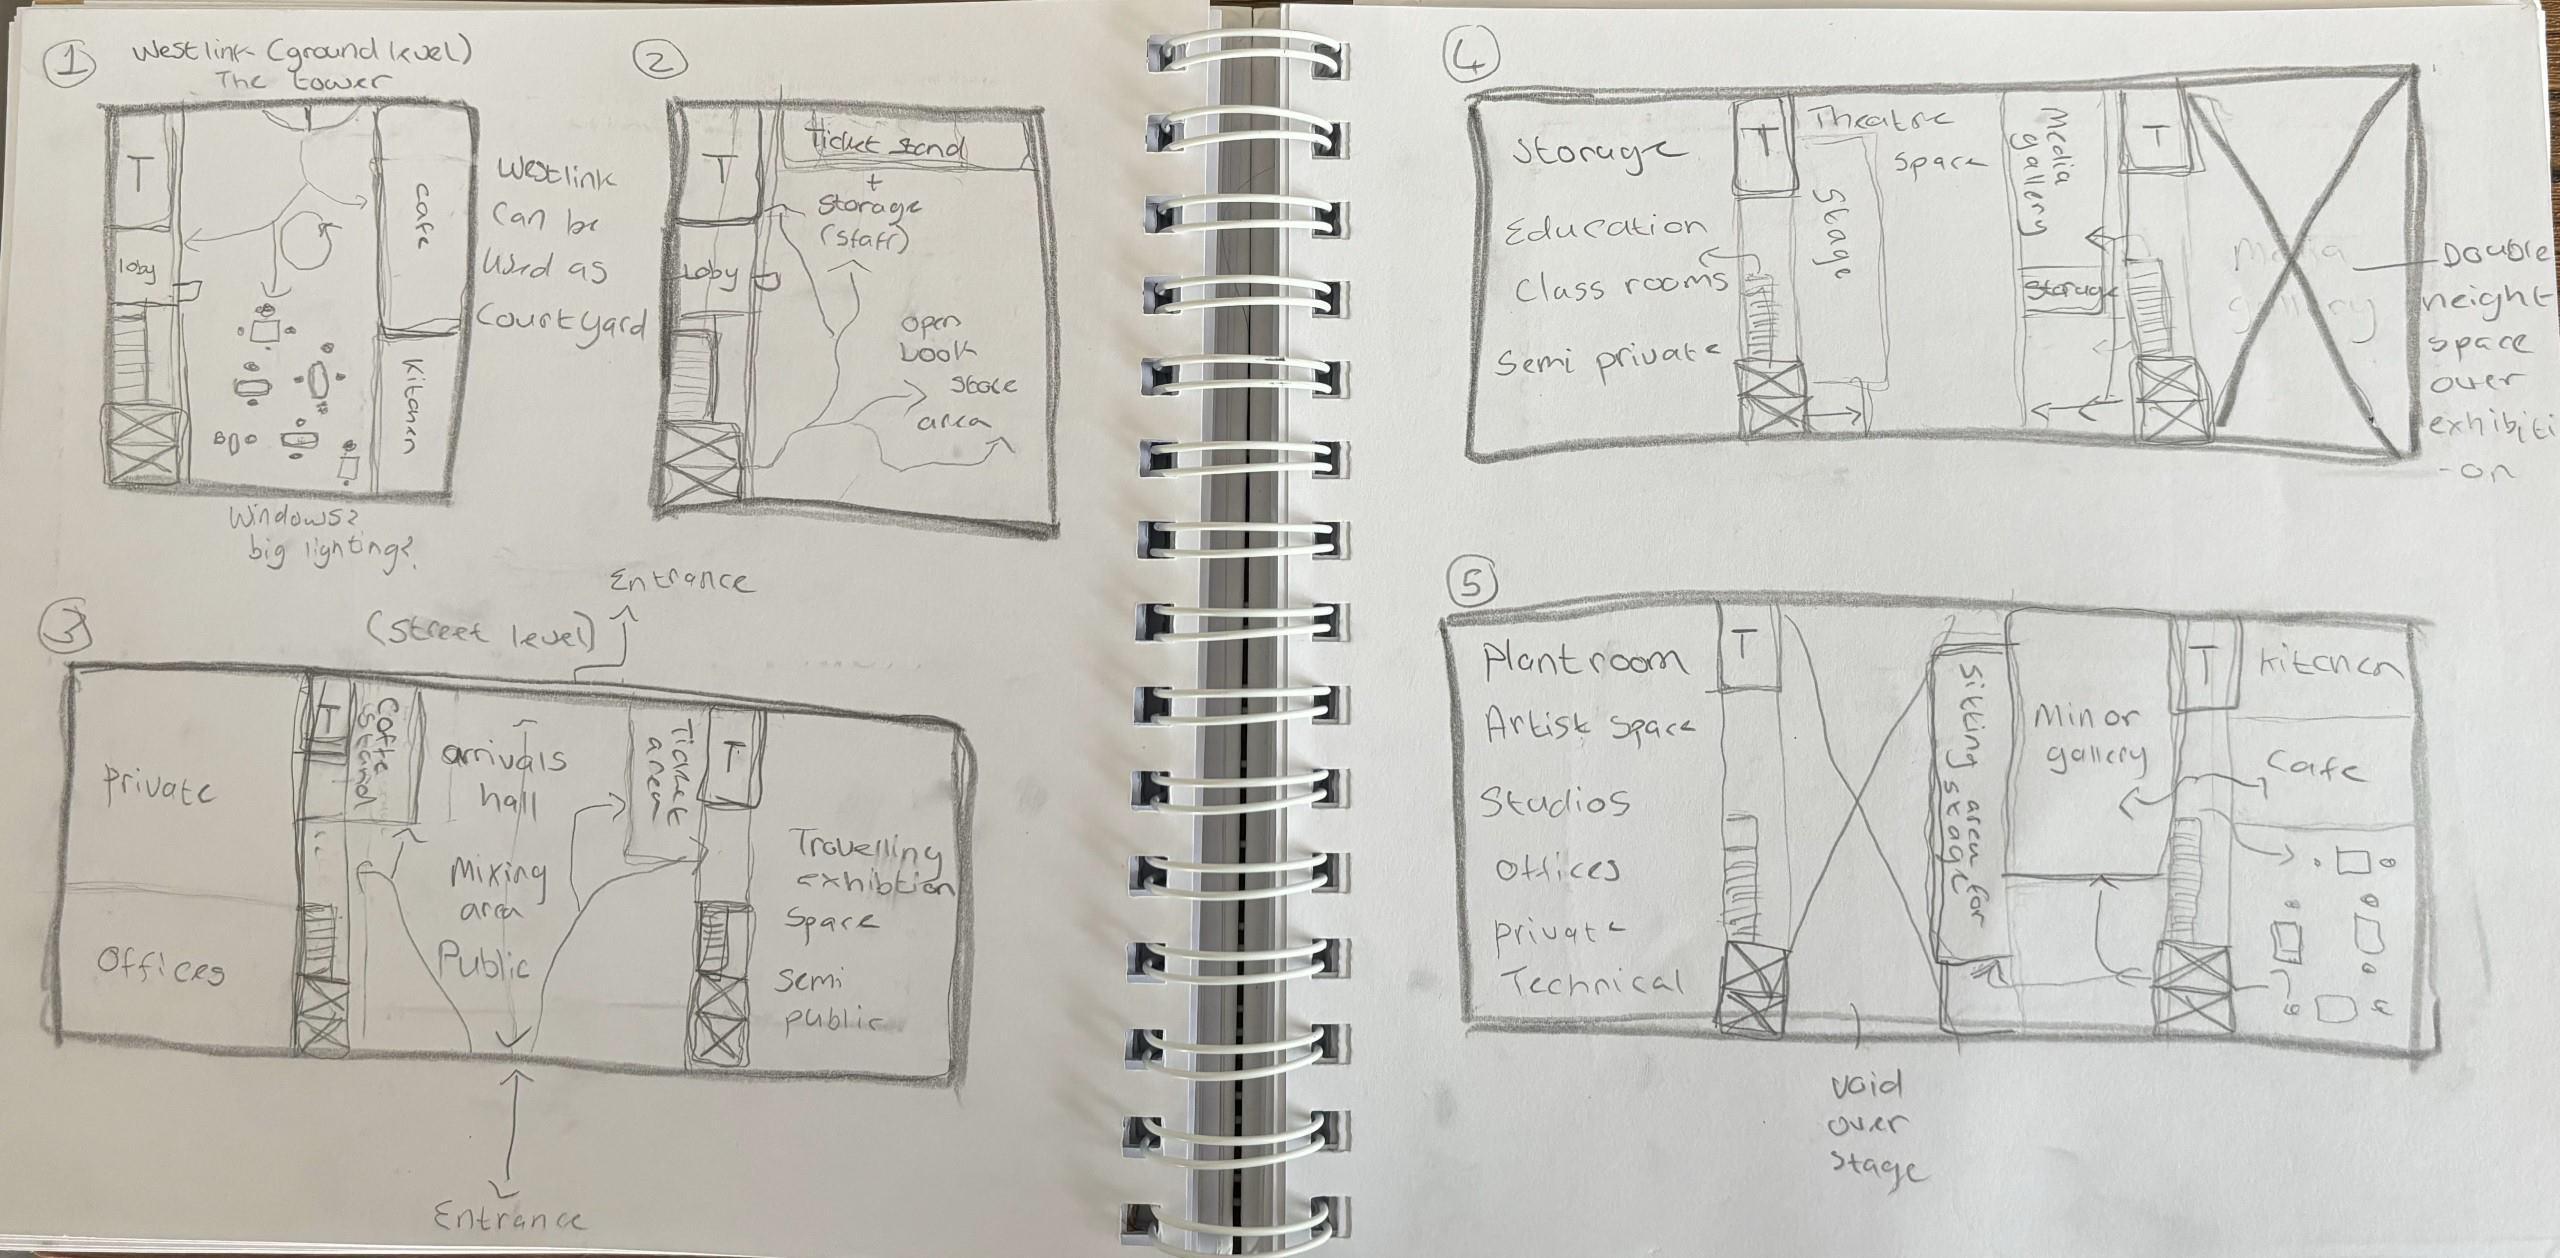 1
Westlink (ground level)
The tower
T
loby
Cafe
Kitchen
Westlink
Can be
Used as
Courtyard
Windows?
big lighting?
2
T
Loby
Ticket stand
+
Storage
(staff)
Open
book
store
area
3
(Street level)
Entrance
Private
Offices
T
Coffe
Stand
arrivals
hall
Mixing
area
Public
Ticket
area
T
Travelling
exhibtion
Space
Semi
public
Entrance
4
Storage
Education
Class rooms
Semi private
T
Theatre
Space
Stage
Media
gallery
Storage
T
Media
gallery
Double
height
space
over
exhibiti
-on
5
Plantroom
Artist Space
Studios
Offices
Private
Technical
T
Sitting area for
stage
Minor
gallery
T
Kitchen
Cafe
Void
over
stage